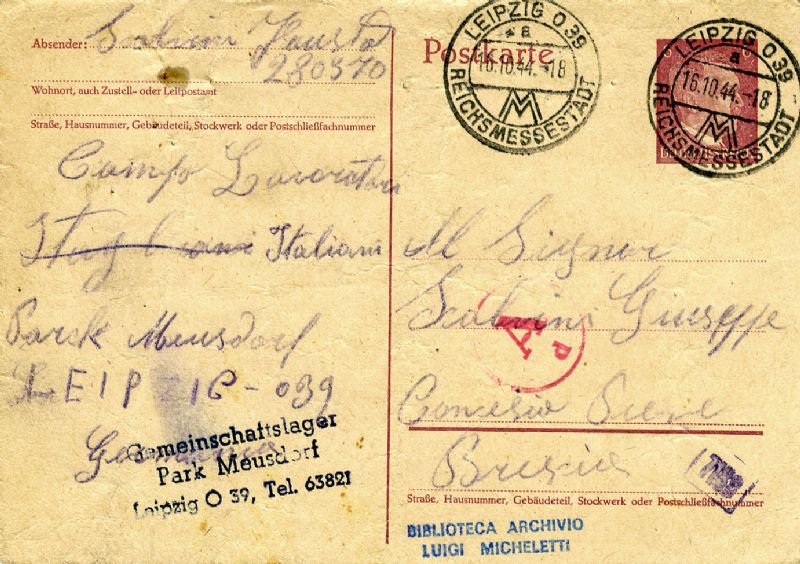 Absender: Sabini Fausto
280570
Wohnort, auch Zustell- oder Leitpostamt
Straße, Hausnummer, Gebäudeteil, Stockwerk oder Postschließfachnummer
Campo Lavoratori
Italiani
Park Meusdorf
LEIPZIG-O39
Germania
Gemeinschaftslager
Park Meusdorf
Leipzig O 39, Tel. 63821
Postkarte
LEIPZIG O 39
a
16.10.44.-18
REICHSMESSESTADT
LEIPZIG O 39
a
16.10.44.-18
REICHSMESSESTADT
Al Signor
Giuseppe
Concesio Pieve
Brescia
Straße, Hausnummer, Gebäudeteil, Stockwerk oder Postschließfachnummer
BIBLIOTECA ARCHIVIO
LUIGI MICHELETTI